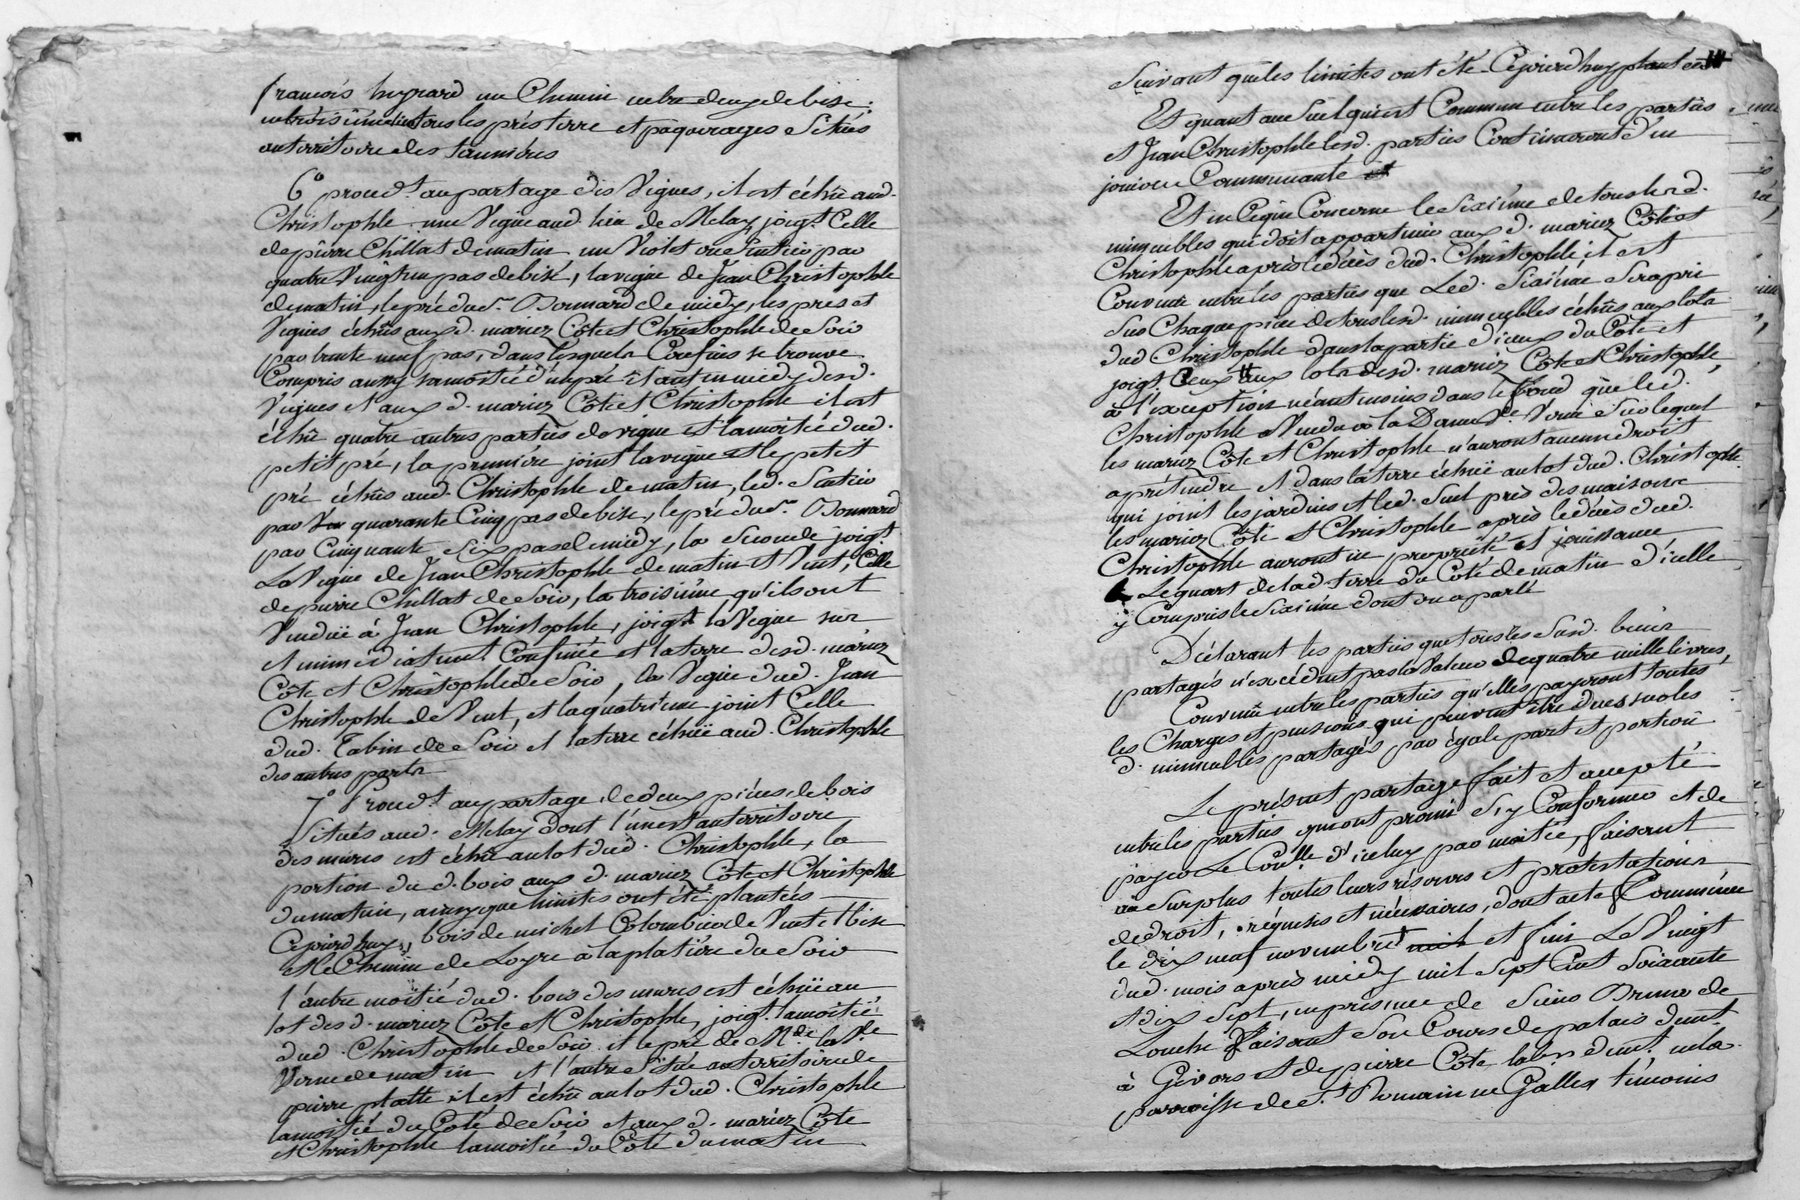 françois hugrard un Chemin entre deux de bise
entroisième lieu tous les prés terre et paquerages Situés
au territoire des tannières
6° proced.t au partage des Vignes, il est échû aud.
Christophle une Vigne aud. lieu de Melay, joig.t Celle
de pierre Chillat de matin un Violet ou Sentier par
quatre Vingt un pas de bise, la vigne de Jean Christophle
de matin, le pré du s.r Bonnard de midy, les prés et
Vignes échûs aux d. mariez Côte et Christophle de Soir
par trente neuf pas, dans lesquels Confins se trouve
Compris aussy la moitié d'un pré étant en midy desd.
Vignes et aux d. mariez Côte et Christophle il est
échû quatre autres parties de vigne et la moitié dud.
petit pré, la premiére joint la vigne et le petit
pré échûs aud. Christophle de matin, led. Sentier
par quarante Cinq pas de bise, le pré du s.r Bonnard
par Cinquante Six pas de midy, la Seconde joig.t
La Vigne de Jean Christophle de matin et Vent, Celle
de pierre Chillat de Soir, la troisiéme qu'ils ont
Venduë à Jean Christophle, joig.t la Vigne sus
et immediatement Confinée et la terre desd. mariez
Côte et Christophle de Soir, la Vigne dud. Jean
Christophle de Vent, et la quatriéme joint Celle
dud. Tabin de Soir et la terre échuë aud. Christophle
des autres parts
7° Proced.t au partage de deux piéces de bois
Situés aud. Melay dont l'une est au territoire
des mures est échû au lot dud. Christophle, la
portion du d. bois aux d. mariez Côte et Christophle
du matin, ainsy que limites ont été plantées
Cejourd'huy, bois de michel Colombier de Vent et bise
et le Chemin de Loyre à la platière du Soir
l'autre moitié dud. bois des mures est échuë au
lot des d. mariez Côte et Christophle, joig.t la moitié
dud. Christophle de Soir et le pré de M.de la V.e
Verne de matin et l'autre Située au territoire de
pierre platte il est échû au lot dud. Christophle
la moitié du Côté de Soir et aux d. mariez Côte
et Christophle la moitié du Côté du matin
Suivant que les limites ont été Cejourd'huy plantées
Et quant au Suel qui est Commun entre les parties
et Jean Christophle lesd. parties Continueront d'en
jouir en Communauté
Et en Ce qui Concerne le Sixiéme de tous lesd.
immeubles qui doit appartenir aux d. mariez Côte et
Christophle après le décès dud. Christophle il est
Convenu entre les parties que Led. Sixiéme Sera pris
Sur Chaque piéce de tous lesd. immeubles échûs aux lots
dud. Christophle dans la partie d'iceux du Côté et
joig.t Ceux aux lots desd. mariez Côte et Christophle,
à l'exception néantmoins dans le fond que led.
Christophle a Vendu à la Dame V.e Verne Sur lequel
les mariez Côte et Christophle n'auront aucun droit
a prétendre et dans la terre échuë au lot dud. Christophle
qui joint les jardins et led. Suel près des maisons
les mariez Côte et Christophle après le décès dud.
Christophle auront en propriété et jouissance
Le quart de lad. terre du Coté de matin d'icelle
y Compris le Sixiéme dont on a parlé
Déclarant les parties que tous les Susd. biens
partagés n'excédent pas la Valeur de quatre mille livres,
Convenu entre les parties qu'elles payeront toutes
les Charges et pensions qui peuvent être dues sur les
d. immeubles partagés par égale part et portion
Le présent partage fait et accepté
entre les parties qui ont promi S'y Conformer et de
payer Le Coulle d'iceluy par moitié, faisant
au Surplus toutes leurs réserves et protestations
de droit, réquises et nécessaires, dont acte Commencé
le dix neuf novembre et fini Le Vingt
dud. mois après midy mil Sept Cent Soixante
et dix Sept, en présence de Sieur Bruno de
Louche faisant Son Cours de palais dem.t
à Givors et de pierre Côte lab.r dem.t en la
paroisse de S.t Romain en Gallex témoins